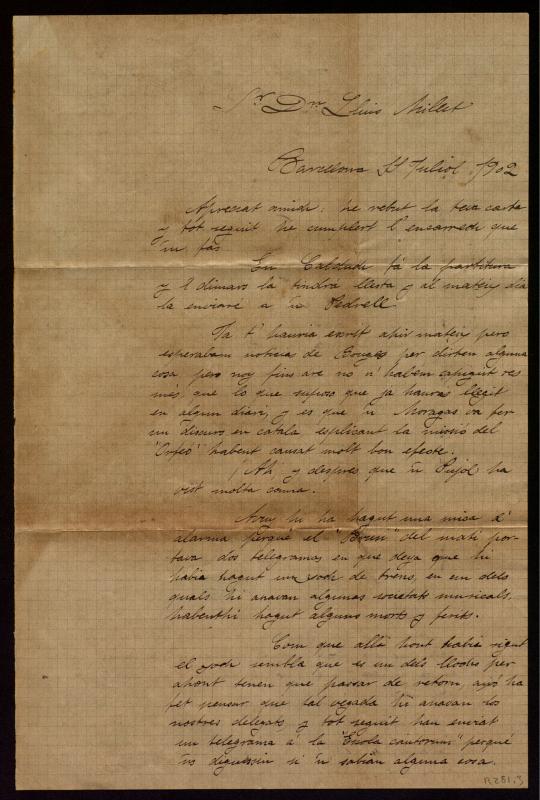 Sr Dn Lluis Millet
Barcelona 11 Juliol 1902
Apreciat amich: he rebut la teva carta
y tot seguit he cumplert l' encarrech que
'm fas.
En Caldudh fá la partitura
y 'l dimars la tindrá llesta y al mateix dia
la enviaré a 'n Pedrell
Ja t' hauria escrit ahir mateix pero
esperabam noticia de Bruges per dirten alguna
cosa pero noy fins are no n' habem capigut res
més que lo que suposo que ja hauras llegit
en algun diari, y es que 'n Moragas va fer
un discurs en catalá esplicant la missió del
"Orfeó" habent causat molt bon efecte.
¡Ah! y despres que 'n Pujol ha
vist molta
Avuy hi ha hagut una mica d'
alarma perqué el "Brusi" del matí por-
tava dos telegramas en que deya que hi
habia hagut un xoch de trens, en un dels
quals hi anavan algunas societats musicals,
habenthi hagut alguns morts y ferits.
Com que allá hont habia sigut
el xoch sembla que es un dels llochs per
ahont tenen que passar de retorn, aixó ha
fet pensar que tal vegada hi anavan los
nostres delegats, y tot seguit han enviat
un telegrama á la "Escola cantorum" perqué
'ns diguessin si 'n sabian alguna cosa.
R281.3